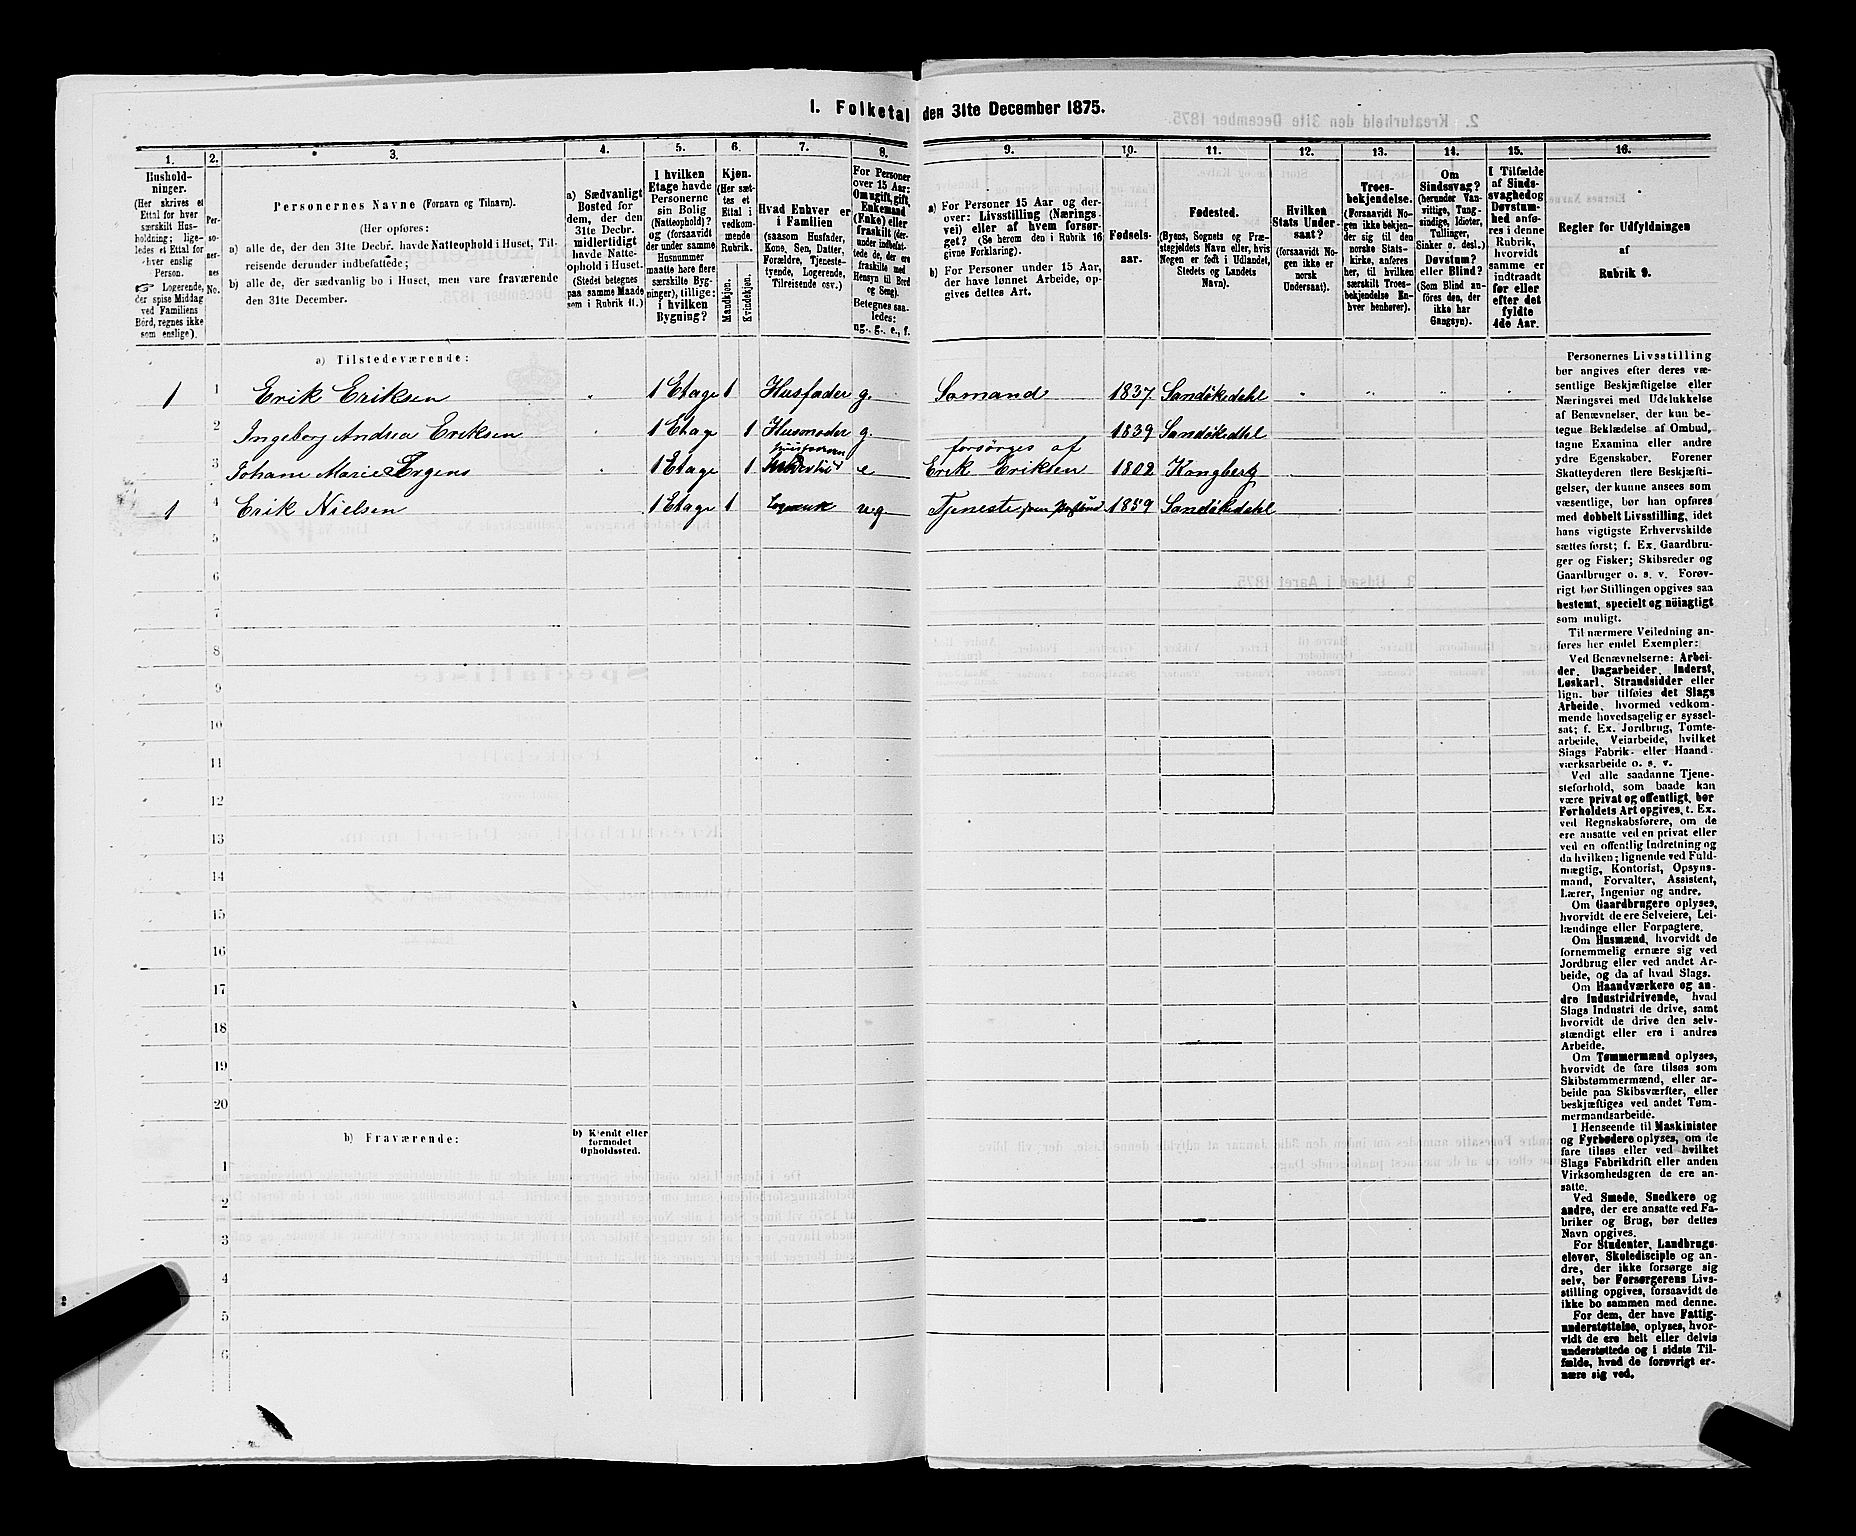 I. Folketal den 31te December 1875.
1. 2. 3. 4. 5. 6. 7. 8. 9. 10. 11. 12. 13. 14. 15. 16.
Husholdninger.
(Her skrives et
Ettal for hver
særskilt Husholdning;
ligeledes et Ettal for
hver enslig
Person.
☞ Logerende,
der spise Middag
ved Familiens
Bord, regnes ikke
som enslige).
Personernes No.
Personernes Navne (Fornavn og Tilnavn).
(Her opføres:
a) alle de, der den 31te Decbr. havde Natteophold i Huset, Tilreisende derunder indbefattede;
b) alle de, der sædvanlig bo i Huset, men vare fraværende
den 31te December.
a) Sædvanligt
Bosted for
dem, der den
31te Decbr.
midlertidigt
havde Natteophold
i Huset.
(Stedet betegnes
paa samme Maade
som i Rubrik 11.)
I hvilken
Etage havde
Personerne
sin Bolig
(Natteophold)?
og (forsaavidt
der under samme
Husnummer
maatte høre flere
særskilte Bygninger),
tillige:
i hvilken
Bygning?
Kjøn.
(Her sættes
et
Ettal i
vedkommende
Rubrik.
Mandkjøn.
Kvindekjøn.
Hvad Enhver er
i Familien
(saasom Husfader,
Kone, Søn, Datter,
Forældre, Tjenestetyende,
Logerende,
Tilreisende osv.)
For Personer
over 15 Aar:
Om ugift, gift,
Enkemand
(Enke) eller
fraskilt (derunder
indbefattede
de, der ere
fraskilte med
Hensyn til Bord
og Seng).
Betegnes saaledes:
ug., g., e., f.
a) For Personer 15 Aar og derover:
Livsstilling (Næringsvei)
eller af hvem forsørget?
(Se herom den i Rubrik 16
givne Forklaring).
b) For Personer under 15 Aar,
der have lønnet Arbeide, opgives
dettes Art.
Fødselsaar.
Fødested.
(Byens, Sognets og Præstegjeldets
Navn eller, hvis
Nogen er født i Udlandet,
Stedets og Landets
Navn).
Hvilken
Stats Undersaat?
(forsaavidt Nogen
ikke er
norsk
Undersaat).
Troesbekjendelse.
(Forsaavidt Nogen
ikke bekjender
sig til den
norske Statskirke,
anføres
her, til hvilken
særskilt Troesbekjendelse
Enhver
henhører).
Om
Sindssvag?
(herunder Vanvittige,
Tungsindige,
Idioter,
Tullinger,
Sinker o. desl.)
Døvstum?
eller Blind?
(Som Blind anføres
den, der
ikke har
Gangsyn).
I Tilfælde
af Sindssvaghed
og
Døvstumhed
anføres
i denne
Rubrik,
hvorvidt
samme er
indtraadt
før eller
efter det
fyldte
4de Aar.
Regler for Udfyldningen
af
Rubrik 9.
a) Tilstedeværende:
1 1 Erik Eriksen 1 Etage 1 Husfader g. Sømand 1837 Sandökedahl
2 Ingeborg Andrea Eriksen 1 Etage 1 Husmoder g. 1839 Sandökedhl
3 Johane Marie 1 Etage 1 e forsörges af
Erik Eriksen 1802 Kongberg
1 4 Erik Nielsen 1 Etage 1 ug Tjeneste 1859 Sandökedahl
5
6
7
8
9
10
11
12
13
14
15
16
17
18
19
20
b) Fraværende:
b) Kjendt eller
formodet
Opholdssted.
1
2
3
4
5
6
Personernes Livsstilling
bør angives efter deres væsentlige
Beskjæftigelse eller
Næringsvei med Udelukkelse
af Benævnelser, der kun betegne
Beklædelse af Ombud,
tagne Examina eller andre
ydre Egenskaber. Forener
Skatteyderen flere Beskjæftigelser,
der kunne ansees som
væsentlige, bør han opføres
med dobbelt Livsstilling, idet
hans vigtigste Erhvervskilde
sættes først; f. Ex. Gaardbruger
og Fisker; Skibsreder og
Gaardbruger o. s. v. Forøvrigt
bør Stillingen opgives saa
bestemt, specielt og nöiagtigt
som muligt.
Til nærmere Veiledning anføres
her endel Exempler:
Ved Benævnelserne: Arbeider,
Dagarbeider, Inderst,
Løskarl, Strandsidder eller
lign. bør tilføies det Slags
Arbeide, hvormed vedkommende
hovedsagelig er sysselsat;
f. Ex. Jordbrug, Tomtearbeide,
Veiarbeide, hvilket
Slags Fabrik- eller Haandværksarbeide
o. s. v.
Ved alle saadanne Tjenesteforhold,
som baade kan
være privat og offentligt, bør
Forholdets Art opgives, t. Ex.
ved Regnskabsførere, om de
ere ansatte ved en privat eller
ved en offentlig Indretning og
da hvilken; lignende ved Fuldmægtig,
Kontorist, Opsynsmand,
Forvalter, Assistent,
Lærer, Ingeniør og andre.
Om Gaardbrugere oplyses,
hvorvidt de ere Selveiere, Leilændinge
eller Forpagtere.
Om Husmænd, hvorvidt de
fornemmelig ernære sig ved
Jordbrug eller ved andet Arbeide,
og da af hvad Slags.
Om Haandværkere og andre
Industridrivende, hvad
Slags Industri de drive, samt
hvorvidt de drive den selvstændigt
eller ere i andres
Arbeide.
Om Tømmermænd oplyses,
hvorvidt de fare tilsøs som
Skibstømmermænd, eller arbeide
paa Skibsværfter, eller
beskjæftiges ved andet Tømmermandsarbeide.
I Henseende til Maskinister
og Fyrbødere oplyses, om de
fare tilsøs eller ved hvilket
Slags Fabrikdrift eller anden
Virksomhedsgren de ere ansatte.
Ved Smede, Snedkere og
andre, der ere ansatte ved Fabriker
og Brug, bør dettes
Navn opgives.
For Studenter, Landbrugselever,
Skoledisciple og andre,
der ikke forsørge sig
selv, bør Forsørgerens Livsstilling
opgives, forsaavidt de
ikke bo sammen med denne.
For dem, der have Fattigunderstøttelse,
oplyses, hvorvidt
de ere helt eller delvis
understøttede og i sidste Tilfælde,
hvad de forøvrigt ernære
sig ved.